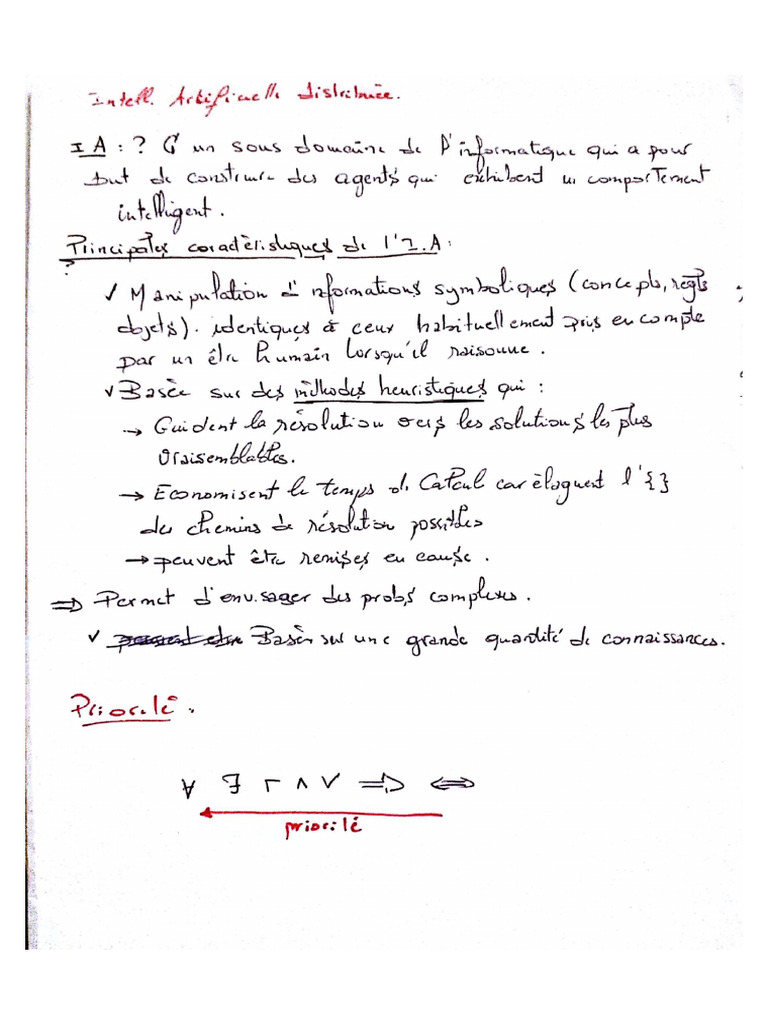 Intell. Artificielle distribuée.
IA : ? C' un sous domaine de l'informatique qui a pour
but de construire des agents qui exhibent un comportement
intelligent.
Principales caractèristiques de l'I.A :
?
✓ Manipulation d'informations symboliques (concepts, règls
objets). identiques à ceux habituellement pris en compte
par un être humain lorsqu'il raisonne.
✓ Basée sur des mèthodes heuristiques qui :
→ Guident la résolution vers les solutions les plus
vraisemblables.
→ Economisent le temps de calcul car èloguent l'{}
des chemins de résolution possibles
→ peuvent être remises en cause.
⇒ Permet d'envisager des probs complexes.
✓ Basès sur une grande quantité de connaissances.
Priorité.
∀ ∃ ¬ ∧ ∨ ⇒ ⇔
priorité